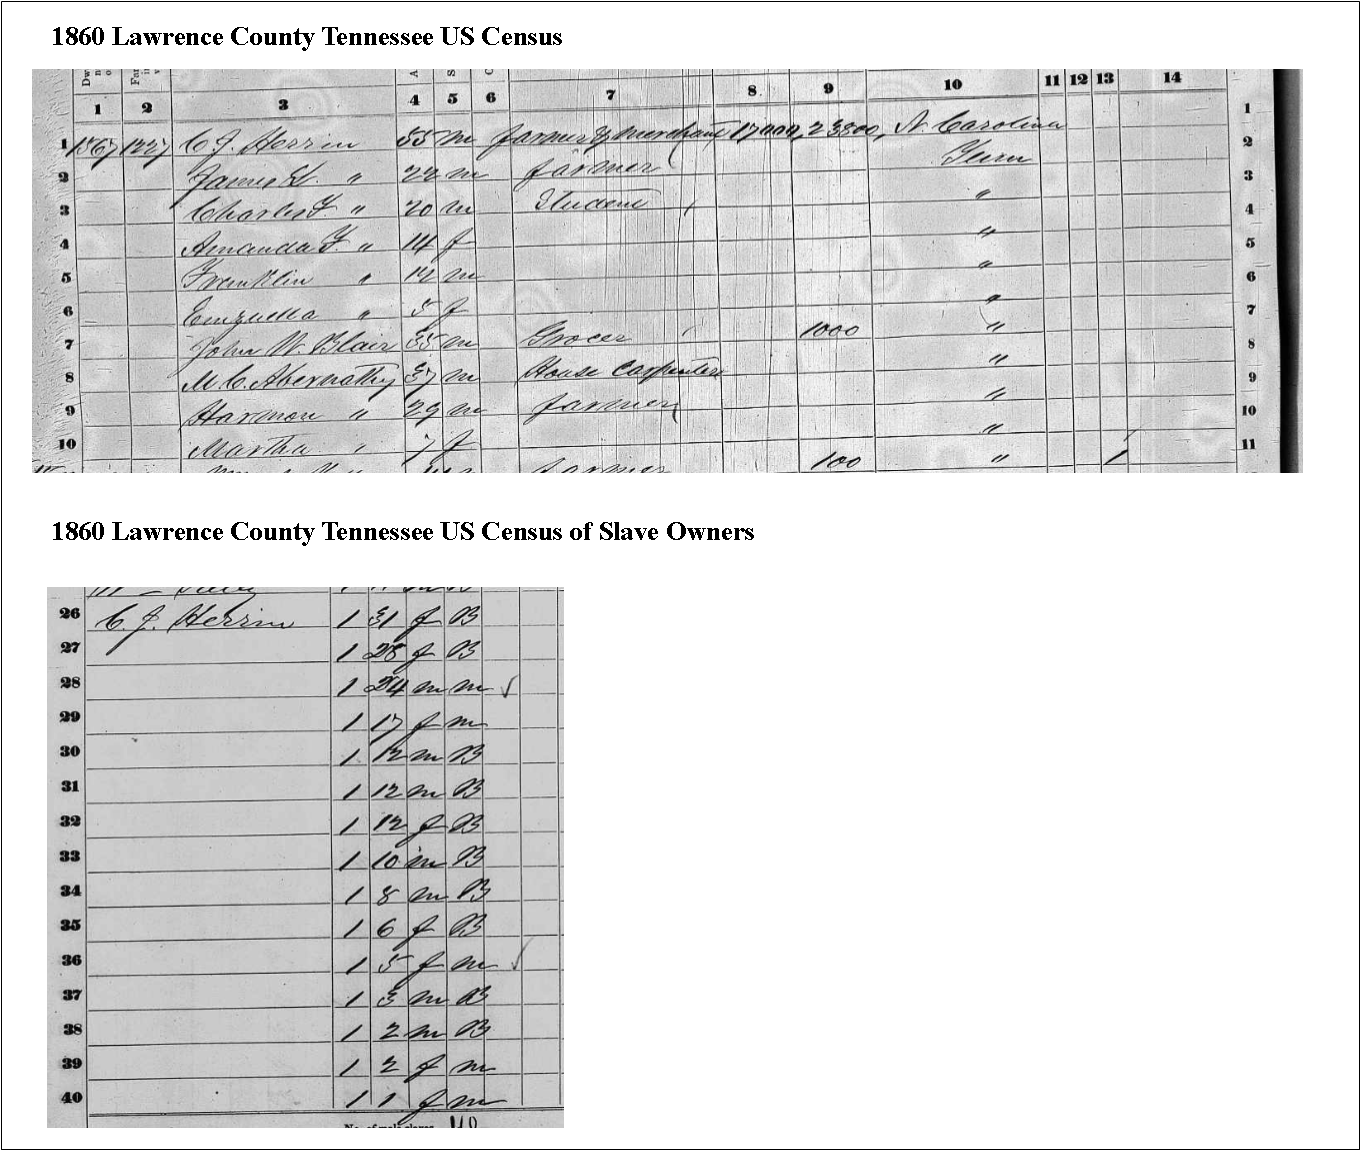 1860 Lawrence County Tennessee US Census
1 2 3 4 5 6 7 8 9 10 11 12 13 14
1 1567 1227 C. J. Herrin 55 m farmer & merchant 17000 23800 N. Carolina 1
2 James " 22 m farmer Tenn 2
3 Charles F " 20 m Student " 3
4 Amanda F. " 14 f " 4
5 Franklin " 12 m " 5
6 " 5 f " 6
7 John W. Blair 35 m Grocer 1000 " 7
8 M. C. Abernathy 37 m House Carpenter " 8
9 Harmon " 29 m farmer " 9
10 Martha " 7 f " 10
farmer 100 " 1 11
1860 Lawrence County Tennessee US Census of Slave Owners
26 C. J. Herrin 1 31 f B
27 1 28 f B
28 1 24 m m ✓
29 1 17 f m
30 1 12 m B
31 1 12 m B
32 1 12 f B
33 1 10 m B
34 1 8 m B
35 1 6 f B
36 1 5 f m ✓
37 1 3 m B
38 1 2 m B
39 1 2 f m
40 1 1 f m